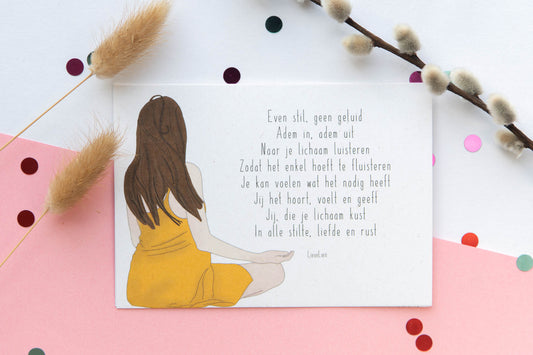 Even stil, geen geluid
Adem in, adem uit
Naar je lichaam luisteren
Zodat het enkel hoeft te fluisteren
Je kan voelen wat het nodig heeft
Jij het hoort, voelt en geeft
Jij, die je lichaam kust
In alle stilte, liefde en rust